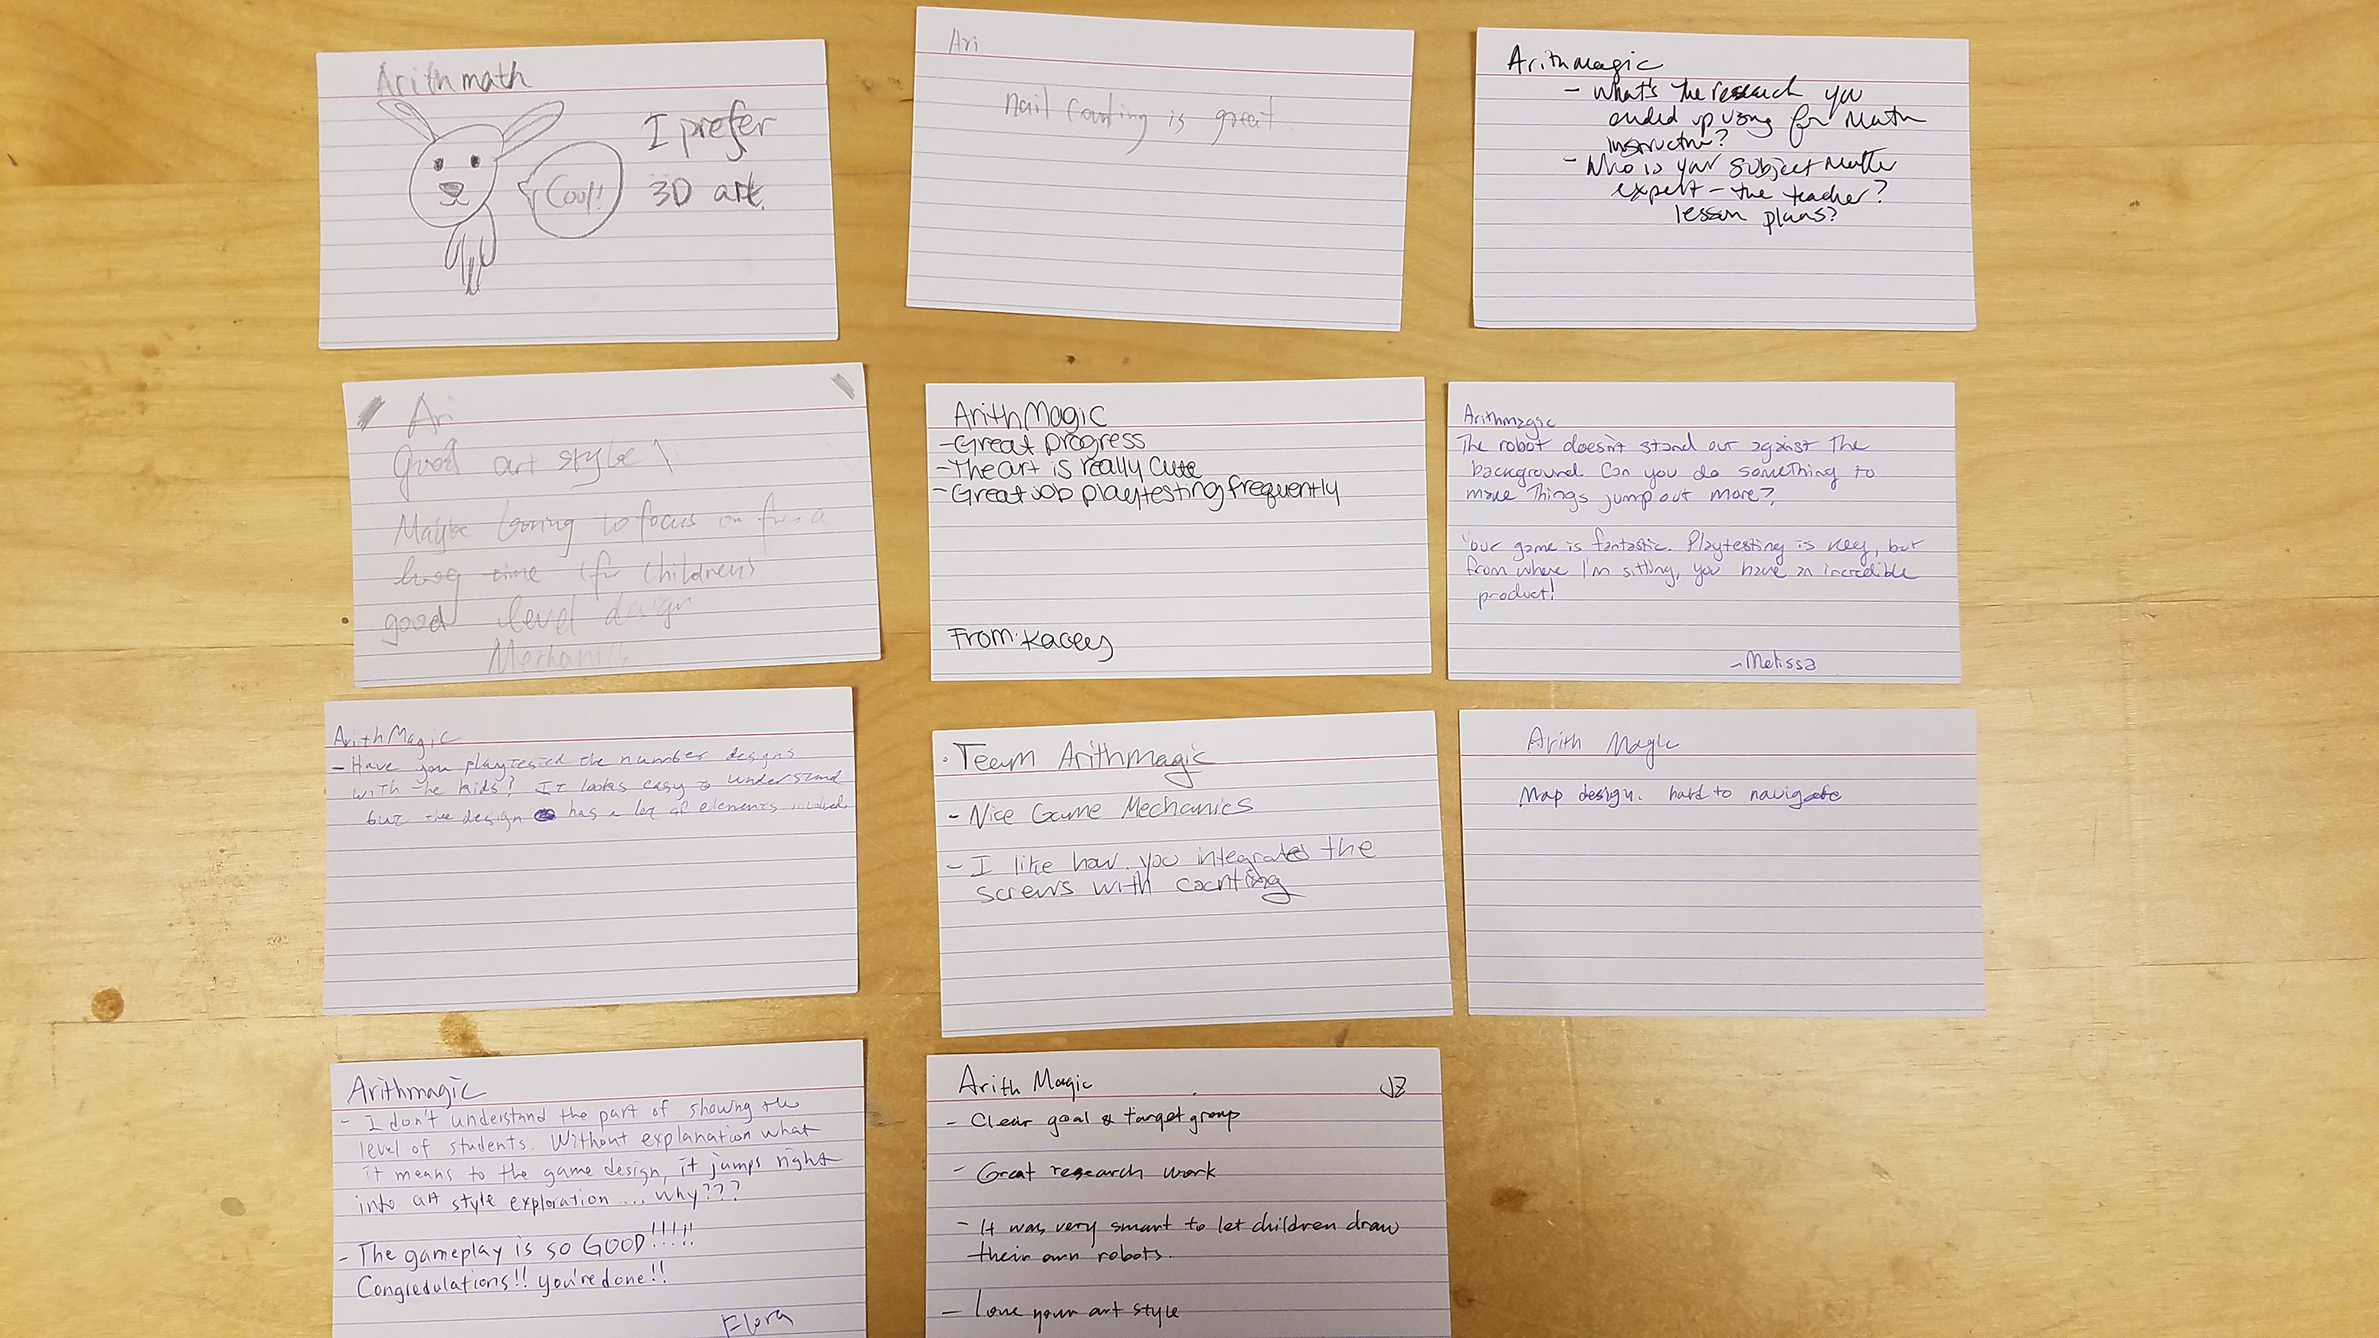 Arithmath
Cool!
I prefer
3D art.
Ari
nail counting is great
Arithmagic
- What's the research you
ended up using for Math
instruction?
- Who is your subject matter
expert - the teacher?
lesson plans?
Ari
Good art style
Maybe boring to focus on for a
long time (for children)
good level design
Mechanic
Arith Magic
- Great progress
- The art is really cute
- Great job playtesting frequently
From: Kacey
Arithmagic
The robot doesn't stand out against the
background. Can you do something to
make things jump out more?
Your game is fantastic. Playtesting is key, but
from where I'm sitting, you have an incredible
product!
- Melissa
Arith Magic
- Have you playtested the number designs
with the kids? It looks easy to understand
but the design has a lot of elements involved.
· Team Arithmagic
- Nice Game Mechanics
- I like how you integrated the
screws with counting
Arith Magic
Map design. hard to navigate
Arithmagic
- I don't understand the part of showing the
level of students. Without explanation what
it means to the game design, it jumps right
into art style exploration ... why???
- The gameplay is so GOOD!!!!!
Congredulations!! you're done!!
Flora
Arith Magic
- Clear goal & target group
- Great research work
- It was very smart to let children draw
their own robots.
- love your art style